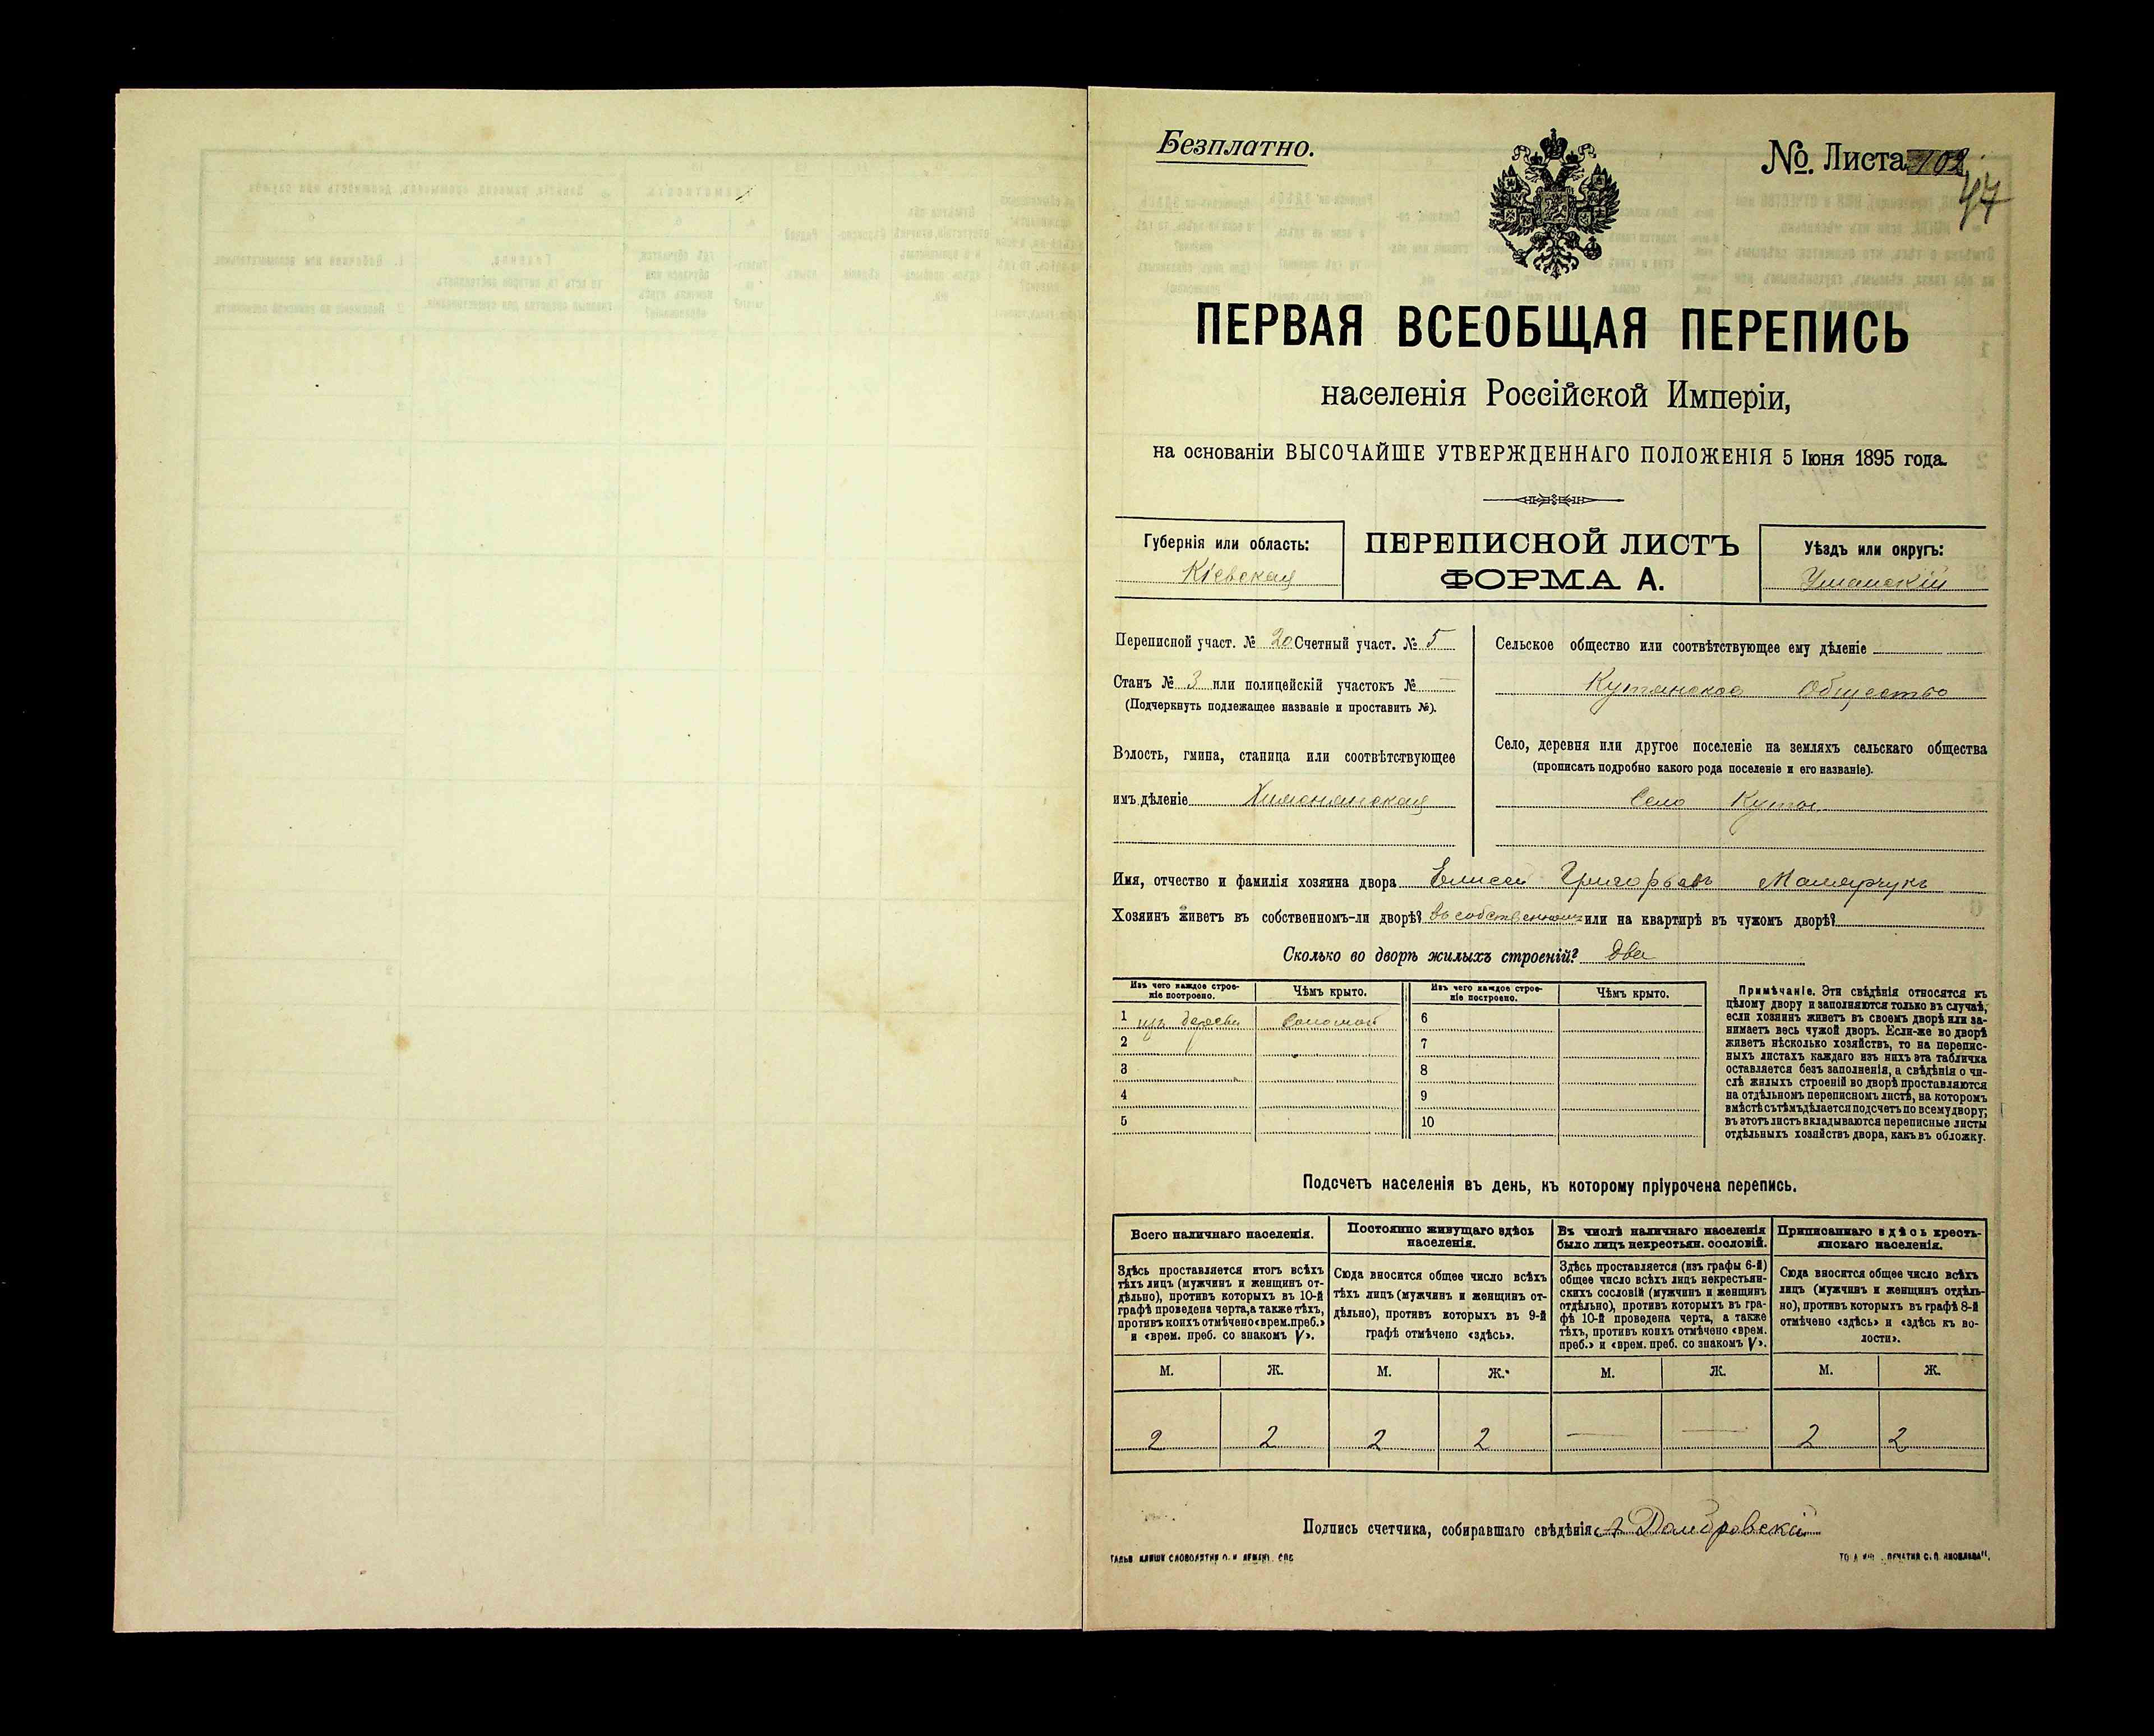 Безплатно.
№. Листа 102
47
ПЕРВАЯ ВСЕОБЩАЯ ПЕРЕПИСЬ
населенія Россійской Имперіи,
на основаніи ВЫСОЧАЙШЕ УТВЕРЖДЕННАГО ПОЛОЖЕНІЯ 5 Іюня 1895 года.
Губернія или область:
Кіевская
ПЕРЕПИСНОЙ ЛИСТЪ
ФОРМА А.
Уѣздъ или округъ:
Уманскій
Переписной участ. № 20 Счетный участ. № 5
Станъ № 3 или полицейскій участокъ № —
(Подчеркнуть подлежащее названіе и проставить №).
Волость, гмина, станица или соотвѣтствующее
имъ дѣленіе
Сельское общество или соотвѣтствующее ему дѣленіе
Кутянское Общество
Село, деревня или другое поселеніе на земляхъ сельскаго общества
(прописать подробно какого рода поселеніе и его названіе).
Село Куты
Имя, отчество и фамилія хозяина двора Елисей Григорьевъ
Хозяинъ живетъ въ собственномъ-ли дворѣ? въ собственномъ или на квартирѣ въ чужомъ дворѣ?
Сколько во дворѣ жилыхъ строеній? Два
Изъ чего каждое строе-
ніе построено.
Чѣмъ крыто.
Изъ чего каждое строе-
ніе построено.
Чѣмъ крыто.
1 изъ дерева Соломой 6
2 7
3 8
4 9
5 10
Примѣчаніе. Эти свѣдѣнія относятся къ
цѣлому двору и заполняются только въ случаѣ,
если хозяинъ живетъ въ своемъ дворѣ или за-
нимаетъ весь чужой дворъ. Если-же во дворѣ
живетъ нѣсколько хозяйствъ, то на перепис-
ныхъ листахъ каждаго изъ нихъ эта табличка
оставляется безъ заполненія, а свѣдѣнія о чи-
слѣ жилыхъ строеній во дворѣ проставляются
на отдѣльномъ переписномъ листѣ, на которомъ
вмѣстѣ съ тѣмъ дѣлается подсчетъ по всему двору;
въ этотъ листъ вкладываются переписные листы
отдѣльныхъ хозяйствъ двора, какъ въ обложку.
Подсчетъ населенія въ день, къ которому пріурочена перепись.
Всего наличнаго населенія.
Постоянно живущаго здѣсь
населенія.
Въ числѣ наличнаго населенія
было лицъ некрестьян. сословій.
Приписаннаго здѣсь кресть-
янскаго населенія.
Здѣсь проставляется итогъ всѣхъ
тѣхъ лицъ (мужчинъ и женщинъ от-
дѣльно), противъ которыхъ въ 10-й
графѣ проведена черта, а также тѣхъ,
противъ коихъ отмѣчено «врем. преб.»
и «врем. преб. со знакомъ V».
Сюда вносится общее число всѣхъ
тѣхъ лицъ (мужчинъ и женщинъ от-
дѣльно), противъ которыхъ въ 9-й
графѣ отмѣчено «здѣсь».
Здѣсь проставляется (изъ графы 6-й)
общее число всѣхъ лицъ некрестьян-
скихъ сословій (мужчинъ и женщинъ
отдѣльно), противъ которыхъ въ гра-
фѣ 10-й проведена черта, а также
тѣхъ, противъ коихъ отмѣчено «врем.
преб.» и «врем. преб. со знакомъ V».
Сюда вносится общее число всѣхъ
лицъ (мужчинъ и женщинъ отдѣль-
но), противъ которыхъ въ графѣ 8-й
отмѣчено «здѣсь» и «здѣсь къ во-
лости».
М. Ж. М. Ж. М. Ж. М. Ж.
2 2 2 2 — — 2 2
Подпись счетчика, собиравшаго свѣдѣнія Домбровскій